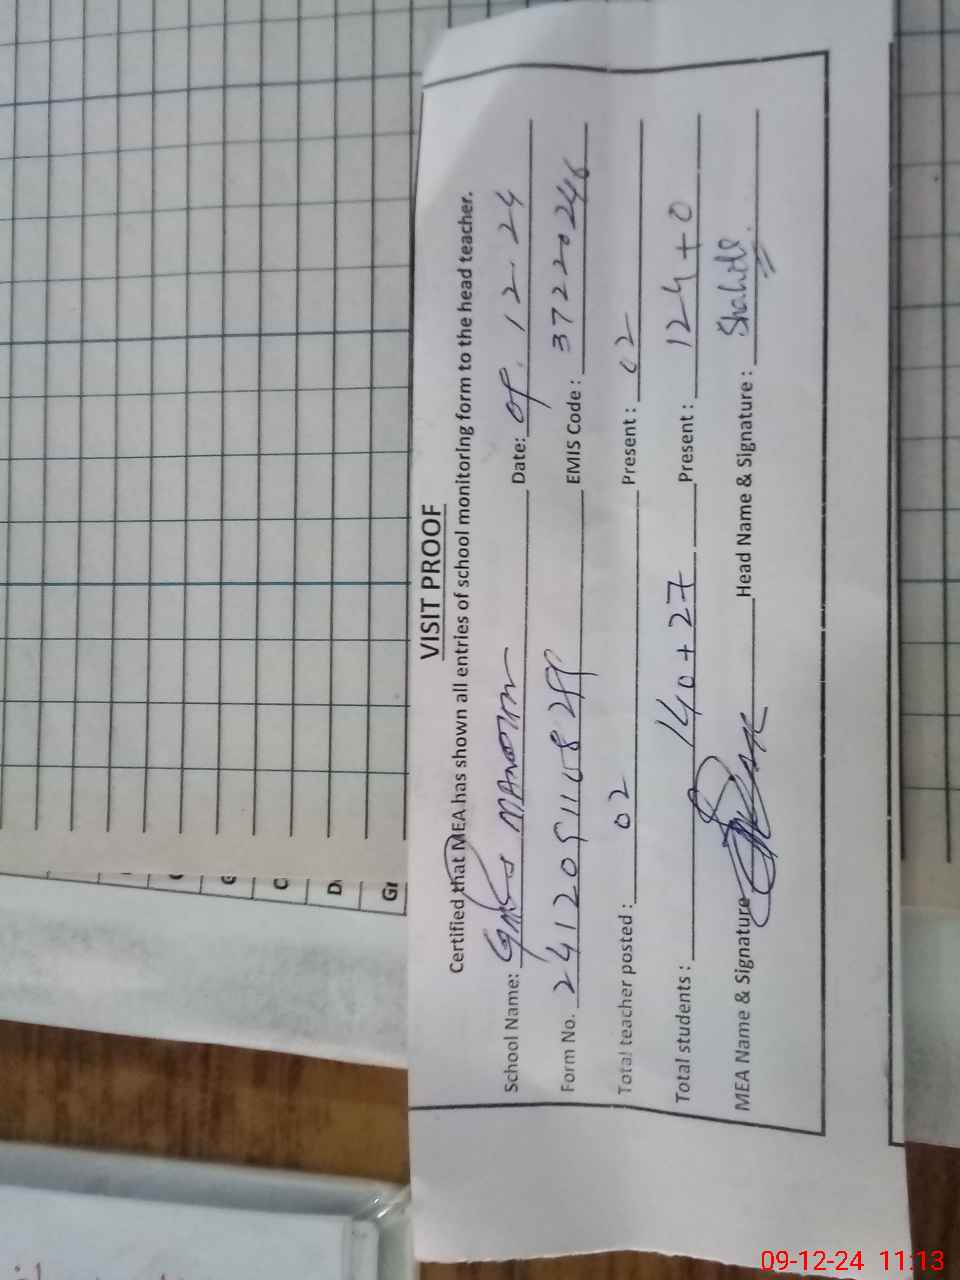 VISIT PROOF
Certified that MEA has shown all entries of school monitoring form to the head teacher.
School Name: Date: 09.12.24
Form No. EMIS Code : 37220246
Total teacher posted : 02 Present : 02
Total students : 140 + 27 Present : 124 + 0
MEA Name & Signature Head Name & Signature :
C
G
C
D
Gr
09-12-24 11:13